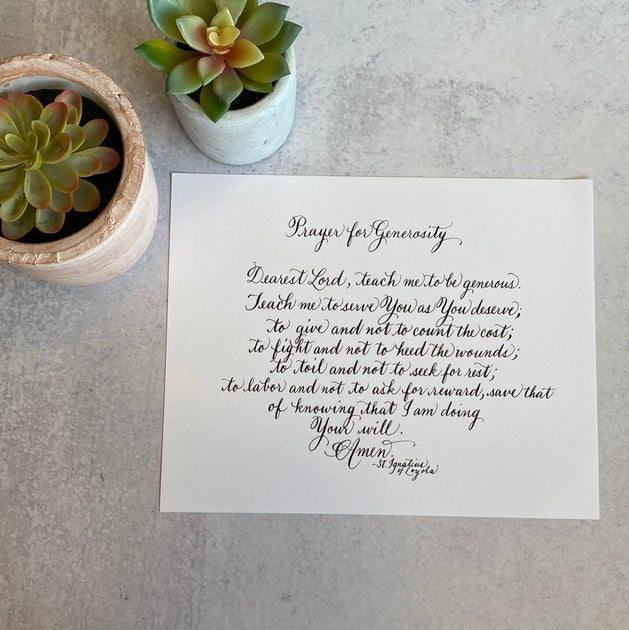 Prayer for Generosity
Dearest Lord, teach me to be generous.
Teach me to serve You as You deserve;
to give and not to count the cost;
to fight and not to heed the wounds;
to toil and not to seek for rest;
to labor and not to ask for reward, save that
of knowing that I am doing
Your will.
Amen.
-St. Ignatius
of Loyola